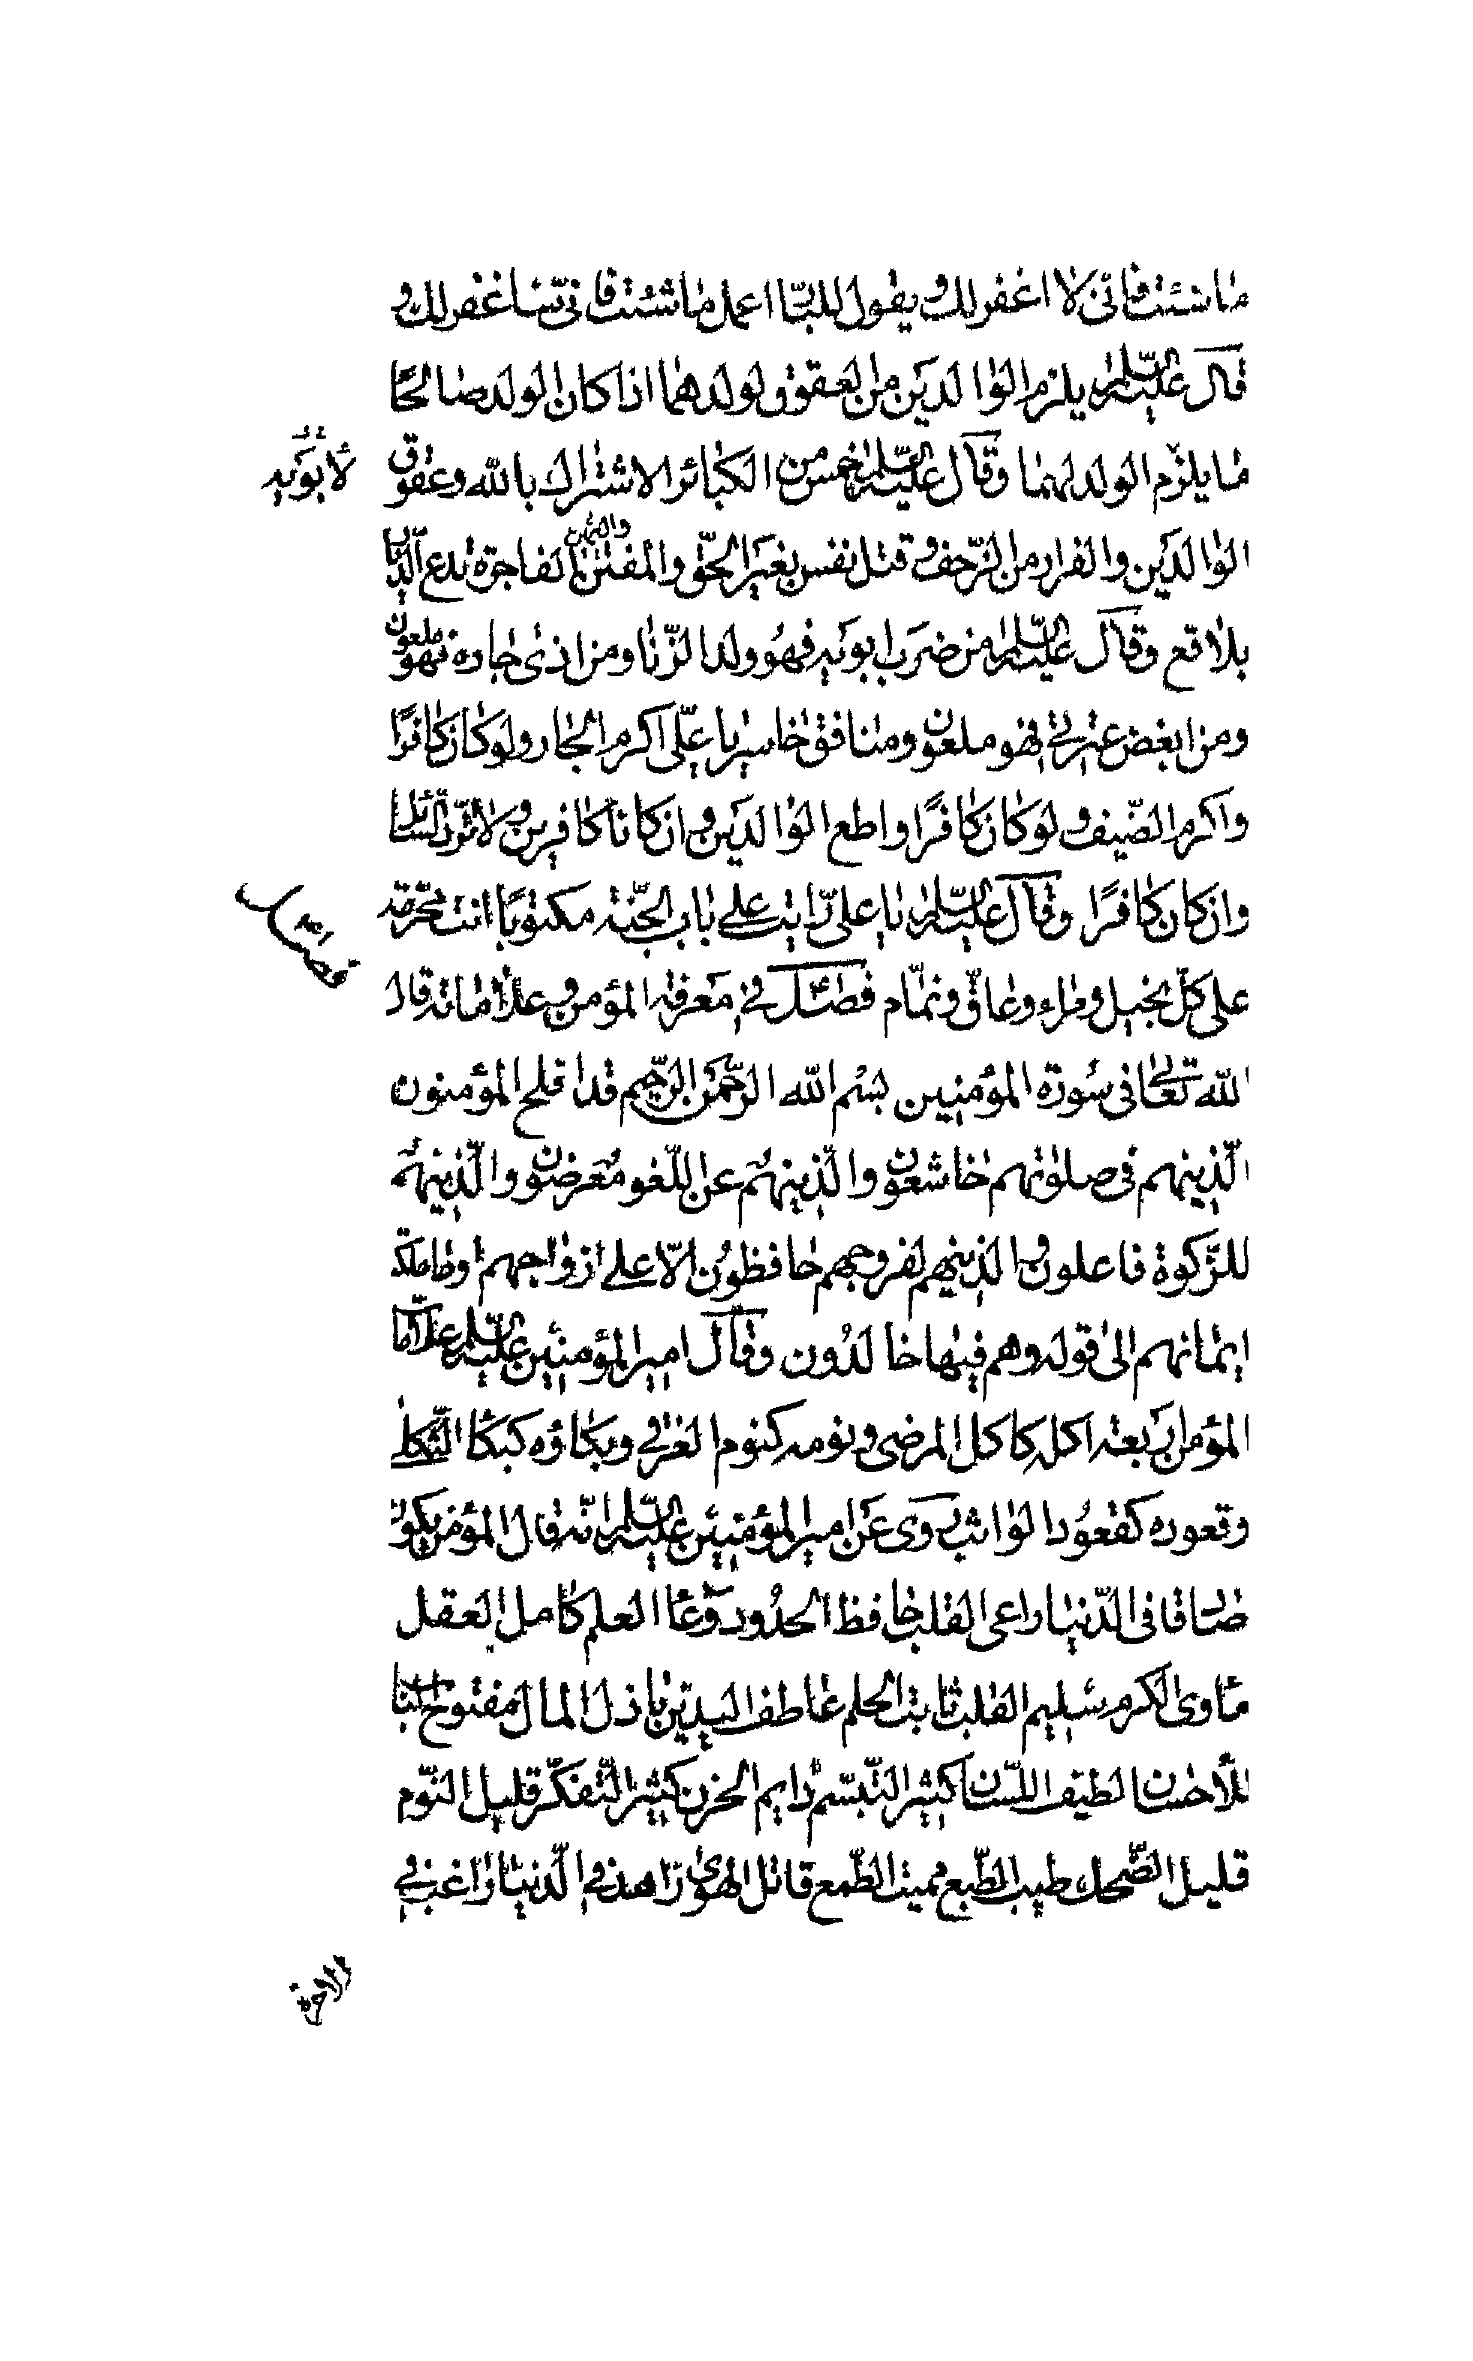 ما شئت فانّى لا اغفر لك و يقول للبارّ اعمل ما شئت فانى سا غفر لك و
قال عليه السلام يلزم الوالدين من العقوق لولدهما اذا كان الولد صالحًا
ما يلزم الولد لهما وقال عليه السلام خمس من الكبائر الاشتراك بالله وعقوق
لأبويه
الوالدين والفرار من الزّحف و قتل نفس بغير الحقّ والمفتن بالفاجرة تدع الديار
واليمين
بلاقع وقال عليه السلام من ضرب ابويه فهو ولد الزّنا ومن اذى جاره فهو ملعون
ومن ابغض عترتى فهو ملعون ومنافق خاسر يا علّى اكرم الجار ولو كان كافرًا
واكرم الضّيف ولو كان كافرًا واطع الوالدين و ان كانا كافرين و لا تردّ السّائل
وان كان كافرًا وقال عليه السلام يا على رّايت على باب الجنّة مكتوبًا انت محرّمة
فصل
على كلّ بخيل ومراء وعاقّ ونمّام فصل في معرفة المؤمن و علاماته قال
الله تعالى فى سورة المؤمنين بسم الله الرّحمن الرّحيم قد افلح المؤمنون
الّذينهم فى صلوتهم خاشعون والّذينهم عن اللّغو معرضون والّذينهم
للزّكوة فاعلون و الذينهم لفروجهم حافظون الّا على ازواجهم او ما ملكة
ايمانهم الى قوله وهم فيها خالدون وقال امير المؤمنين عليه السلام علامات
المؤمن اربعة اكله كاكل المرضى و نومه كنوم الغرقى وبكاؤه كبكا الثّكلى
وقعوده كقعود الواثب روى عن امير المؤمنين عليه السلام انّه قال المؤمن يكون
صادقا فى الدّنيا راعى القلب حافظ الحدود وعّاء العلم كامل العقل
مأوى الكرم سليم القلب ثابت الحلم عاطف اليدين باذل المال مفتوح الباب
للأحسان لطيف اللسان كثير التّبسّم دايم الحزن كثير التّفكّر قليل النّوم
قليل الضّحك طيب الطّبع مميت الطّمع قاتل الهوى زاهد في الّدنيا راغب في
الاخرة